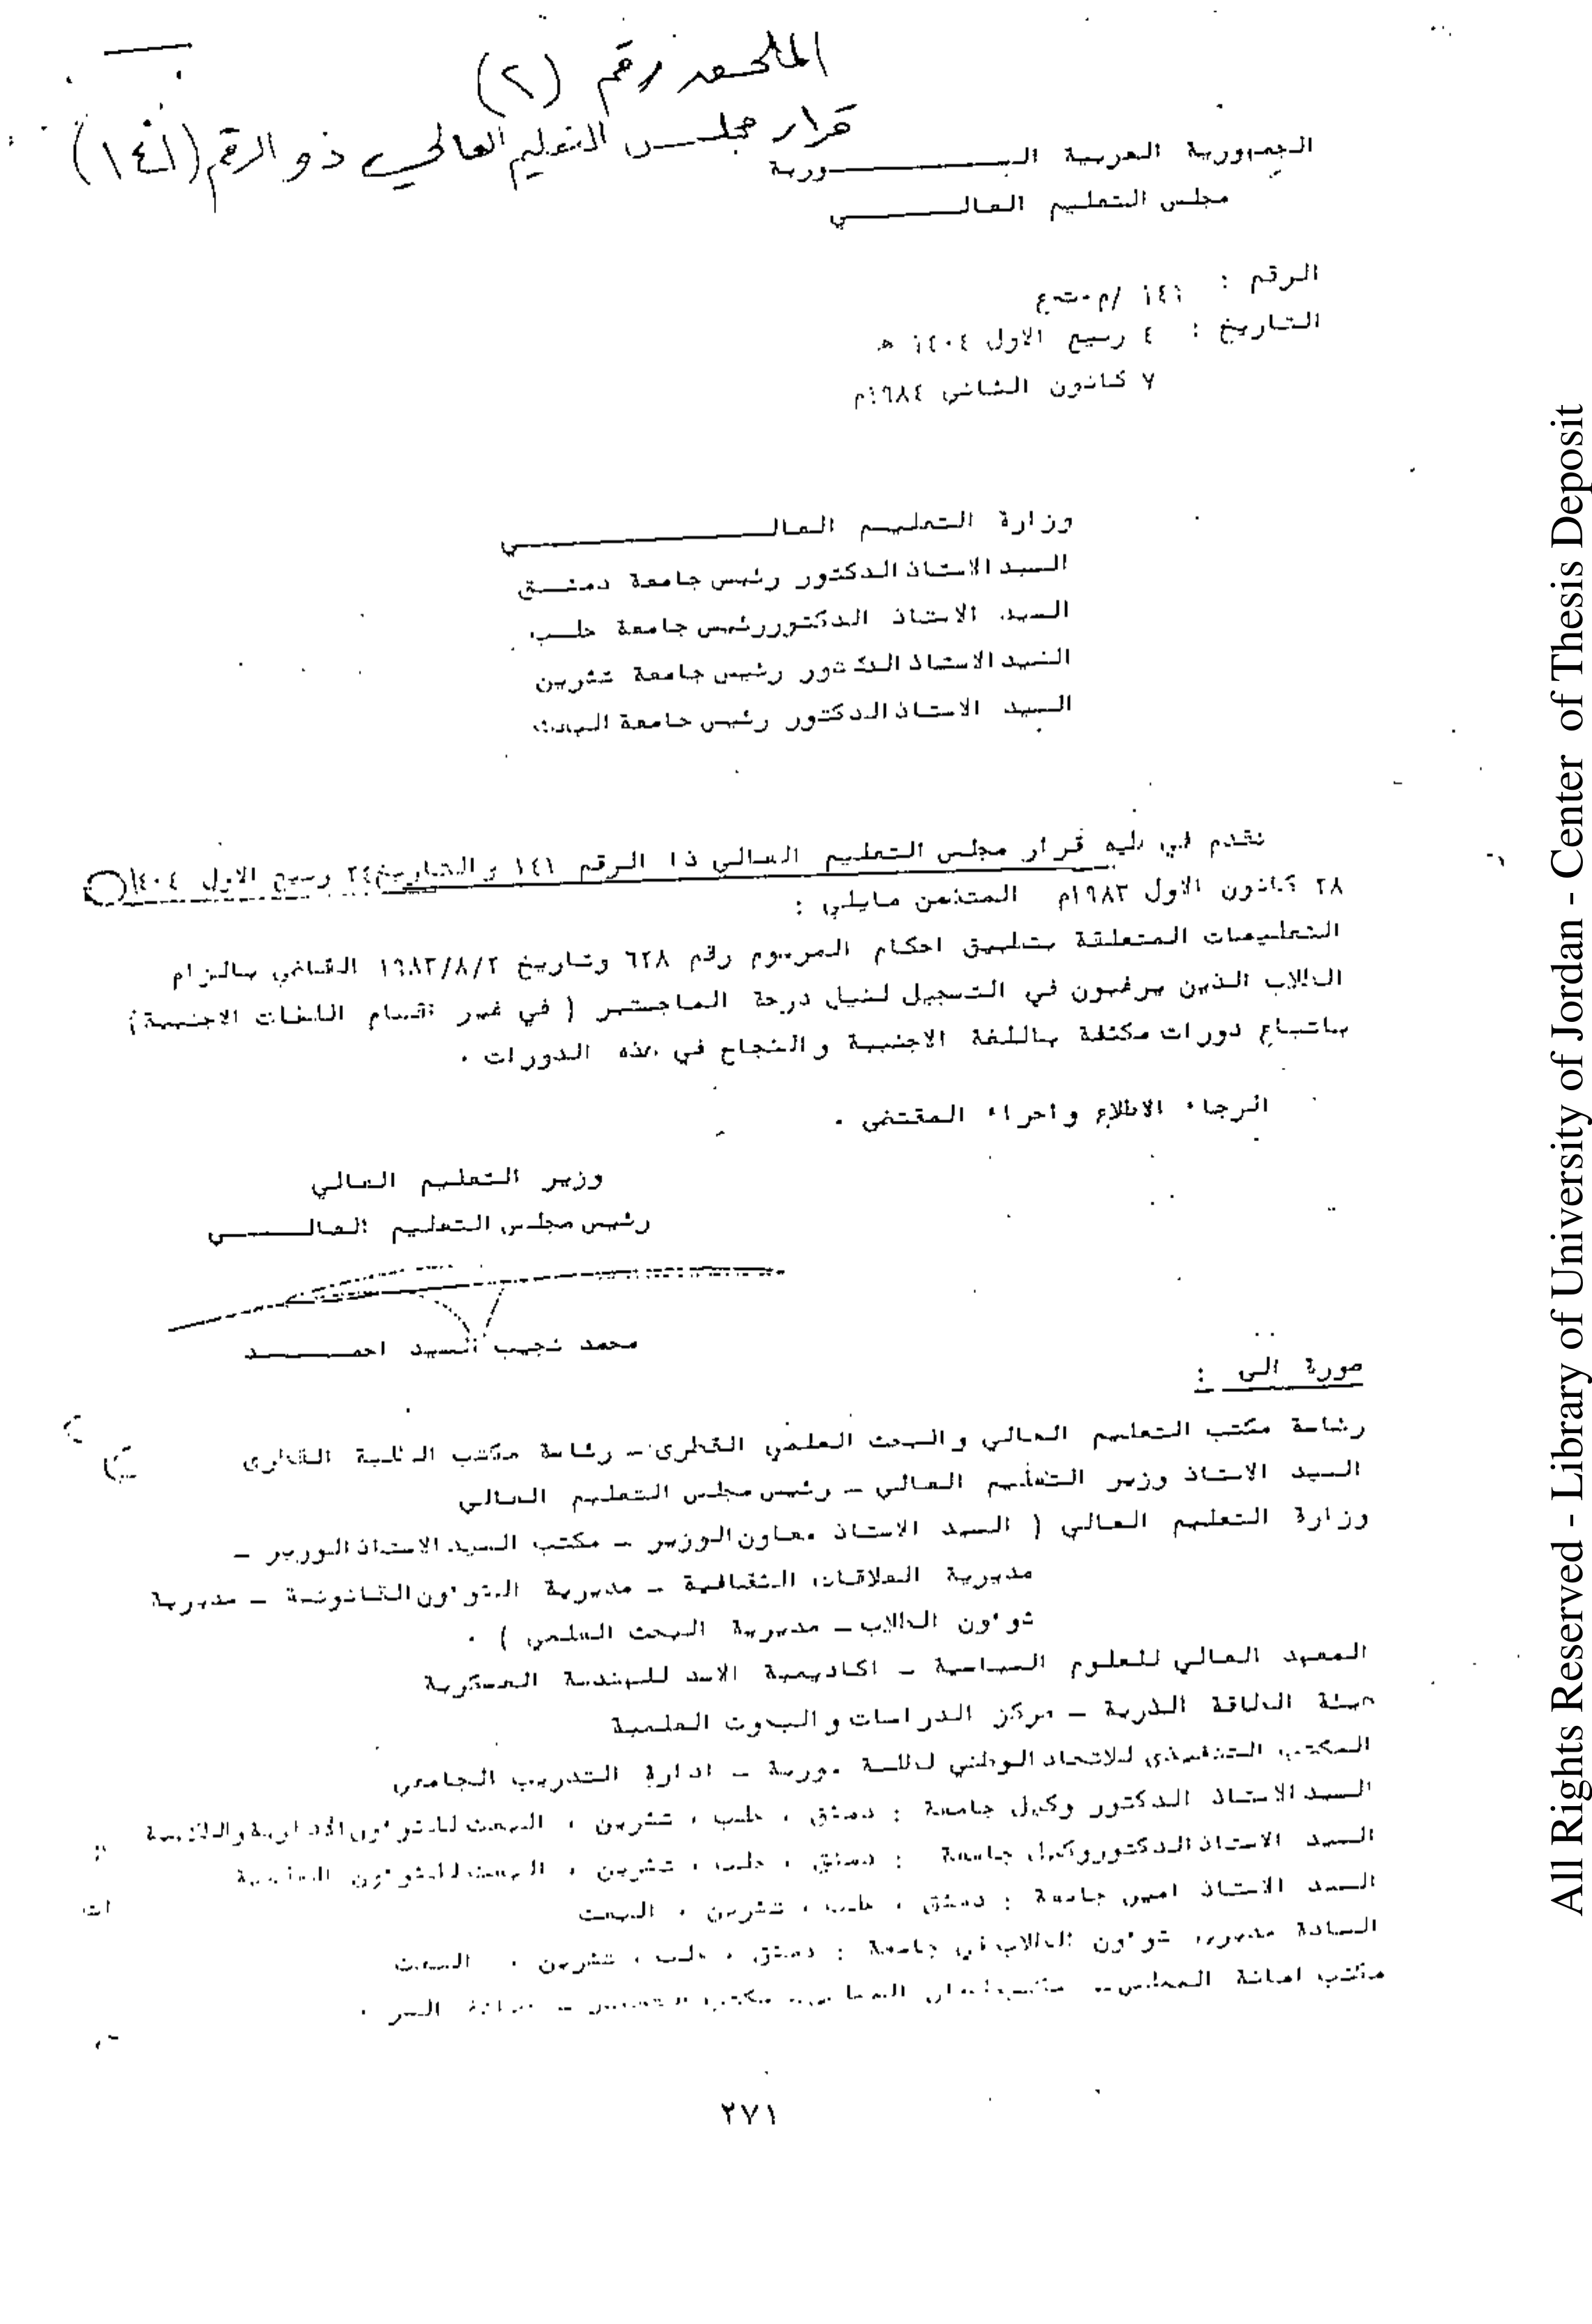 الملحق رقم (٢)
قرار مجلس التعليم العالي ذو الرقم (١٤١)
الجمهورية العربية السورية
مجلس التعليم العالي
الرقم : ١٤١ /م٠ت٠ع
التاريخ : ٤ ربيع الاول ١٤٠٤ ه
٧ كانون الثاني ١٩٨٤م
وزارة التعليم العالي
السيد الاستاذ الدكتور رئيس جامعة دمشق
السيد الاستاذ الدكتور رئيس جامعة حلب
السيد الاستاذ الدكتور رئيس جامعة تشرين
السيد الاستاذ الدكتور رئيس جامعة البعث
نقدم في طيه قرار مجلس التعليم العالي ذا الرقم ١٤١ والتاريخ ٢٤ ربيع الاول ١٤٠٤
٢٨ كانون الاول ١٩٨٣م المتضمن مايلي :
التعليمات المتعلقة بتطبيق احكام المرسوم رقم ٦٢٨ وتاريخ ١٩٨٣/٨/٢ القاضي بالزام
الطلاب الذين يرغبون في التسجيل لنيل درجة الماجستير ( في غير اقسام اللغات الاجنبية)
باتباع دورات مكثفة باللغة الاجنبية والنجاح في هذه الدورات ٠
الرجاء الاطلاع واجراء المقتضى ٠
وزير التعليم العالي
رئيس مجلس التعليم العالي
محمد نجيب السيد احمد
صورة الى :
رئاسة مكتب التعليم العالي والبحث العلمي القطرى – رئاسة مكتب الطلبة القطرى
السيد الاستاذ وزير التعليم العالي – رئيس مجلس التعليم العالي
وزارة التعليم العالي ( السيد الاستاذ معاون الوزير – مكتب السيد الاستاذ الوزير –
مديرية العلاقات الثقافية – مديرية الشوءون القانونية – مديرية
شوءون الطلاب – مديرية البحث العلمي ) ٠
المعهد العالي للعلوم السياسية – اكاديمية الاسد للهندسة العسكرية
هيئة الطاقة الذرية – مركز الدراسات والبحوث العلمية
المكتب التنفيذى للاتحاد الوطني لطلبة سورية – ادارة التدريب الجامعي
السيد الاستاذ الدكتور وكيل جامعة : دمشق ، حلب ، تشرين ، البعث للشوءون الادارية والطلابية
السيد الاستاذ الدكتور وكيل جامعة : دمشق ، حلب ، تشرين ، البعث للشوءون العلمية
السيد الاستاذ امين جامعة : دمشق ، حلب ، تشرين ، البعث
السادة مديرو شوءون الطلاب في جامعة : دمشق ، حلب ، تشرين ، البعث
مكتب امانة المجلس –
٢٧١
All Rights Reserved - Library of University of Jordan - Center of Thesis Deposit